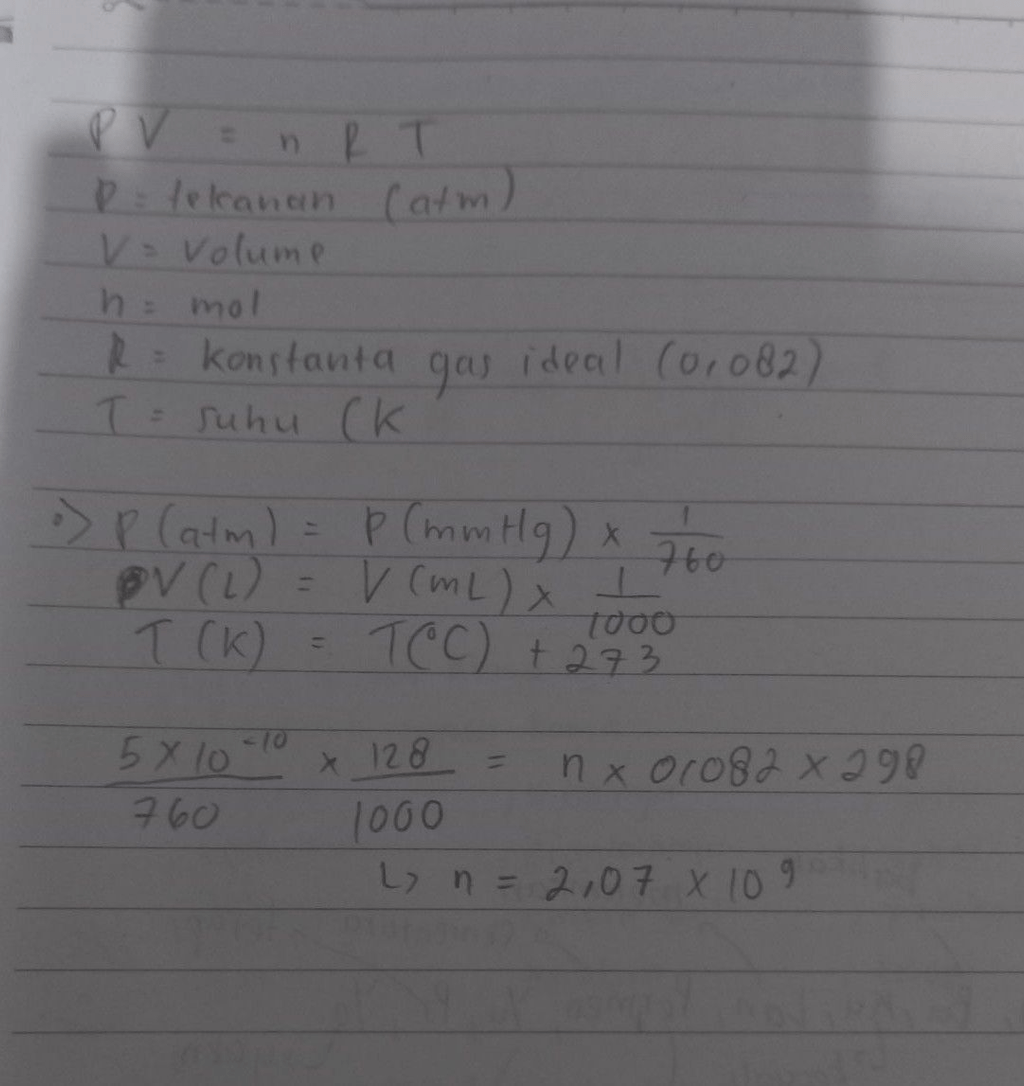 PV = n R T
P = tekanan (atm)
V = Volume
n = mol
R = konstanta gas ideal (0,082)
T = suhu (K
•> P(atm) = P(mmHg) x 1/760
V(L) = V(mL) x 1/1000
T(K) = T(°C) + 273
5 x 10⁻¹⁰/760 x 128/1000 = n x 0,082 x 298
↳ n = 2,07 x 10⁹